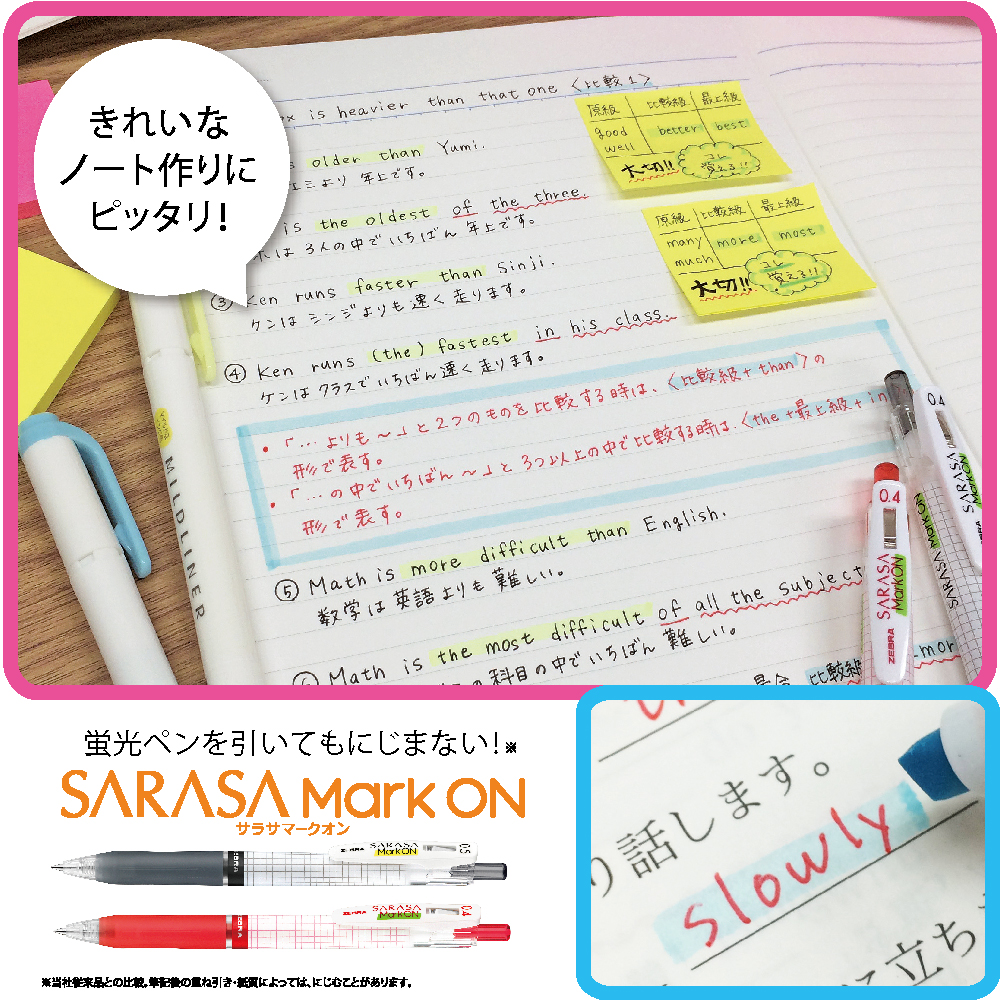 きれいな
ノート作りに
ピッタリ!
is heavier than that one 〈比較1〉
older than Yumi.
より 年上です。
is the oldest of the three.
は 3人の中でいちばん 年上です。
③ Ken runs faster than Sinji.
ケンは シンジよりも 速く 走ります。
④ Ken runs (the) fastest in his class.
ケンは クラスでいちばん 速く 走ります。
原級 比較級 最上級
good better best
well
大切!! コレ覚える!!
原級 比較級 最上級
many more most
much
大切!! コレ覚える!!
・「…よりも～」と2つのものを比較する時は、〈比較級+than〉の
形で表す。
・「…の中でいちばん～」と3つ以上の中で比較する時は、〈the+最上級+in
形で表す。
⑤ Math is more difficult than English.
数学は英語よりも難しい。
Math is the most difficult of all the subject
の科目の中でいちばん 難しい。
比較級
more
MILDLINER
0.4
SARASA
Mark ON
ZEBRA
0.4
SARASA
Mark ON
SARASA
Mark ON
蛍光ペンを引いてもにじまない!※
SARASA Mark ON
サラサマークオン
ZEBRA
SARASA
Mark ON
0.5
ZEBRA
ZEBRA
SARASA
Mark ON
0.4
※当社従来品との比較。筆記後の重ね引き・紙質によっては、にじむことがあります。
り話します。
slowly
に立ち